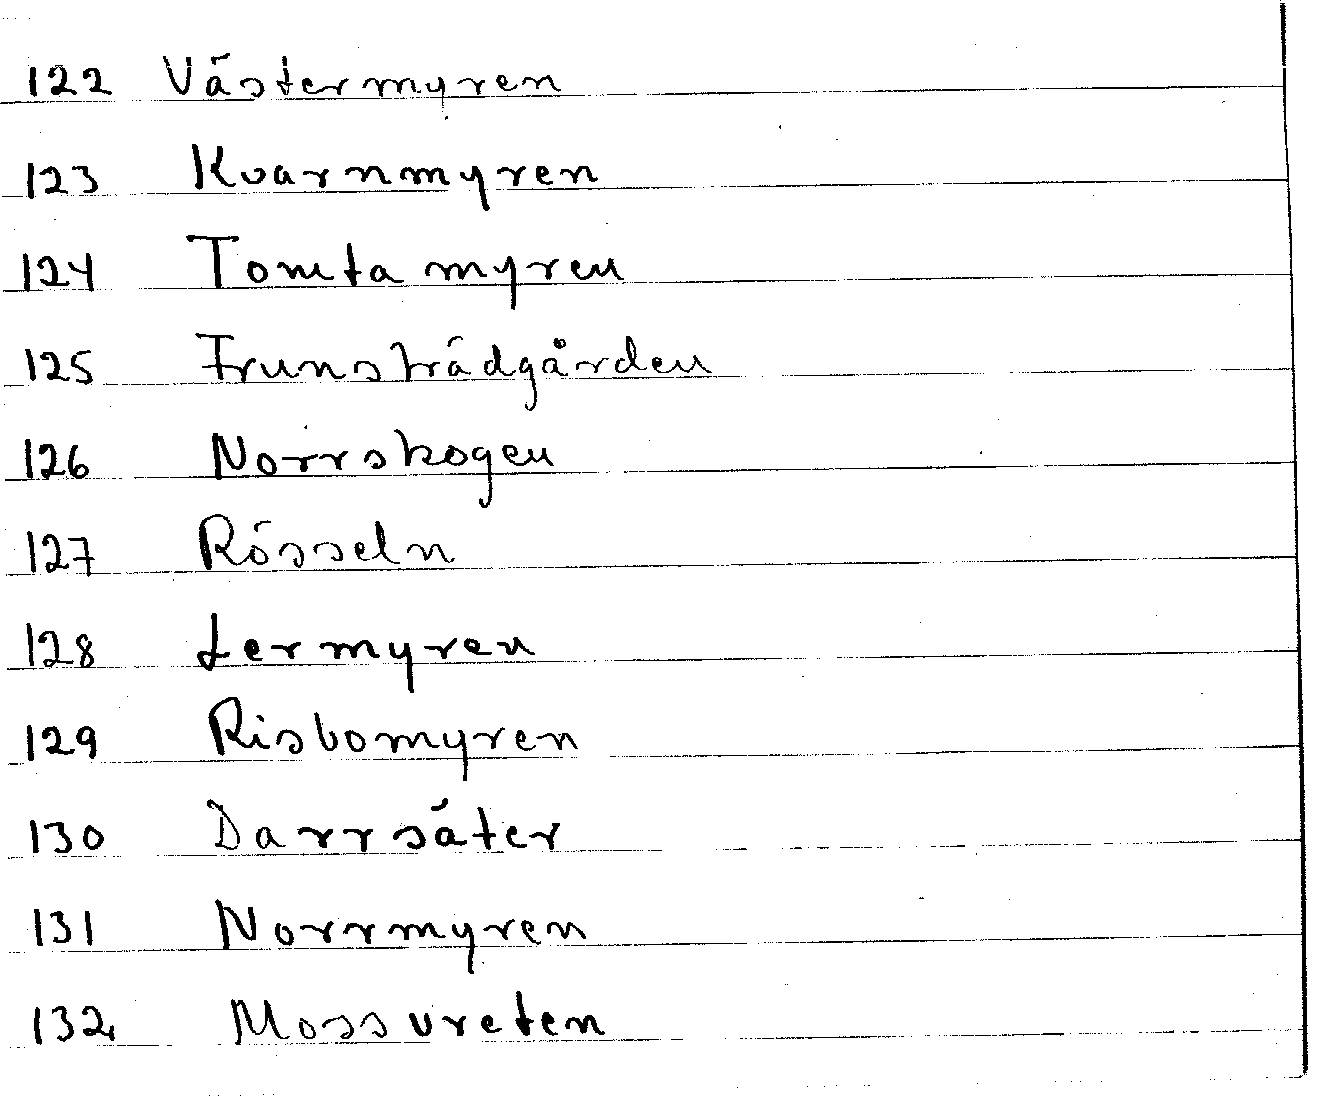 122 Västermyren
123 Kvarnmyren
124 Tomta myren
125 Frunsträdgården
126 Norrskogen
127 Rösseln
128 Lermyren
129 Risbomyren
130 Darrsäter
131 Norrmyren
132 Mossvreten